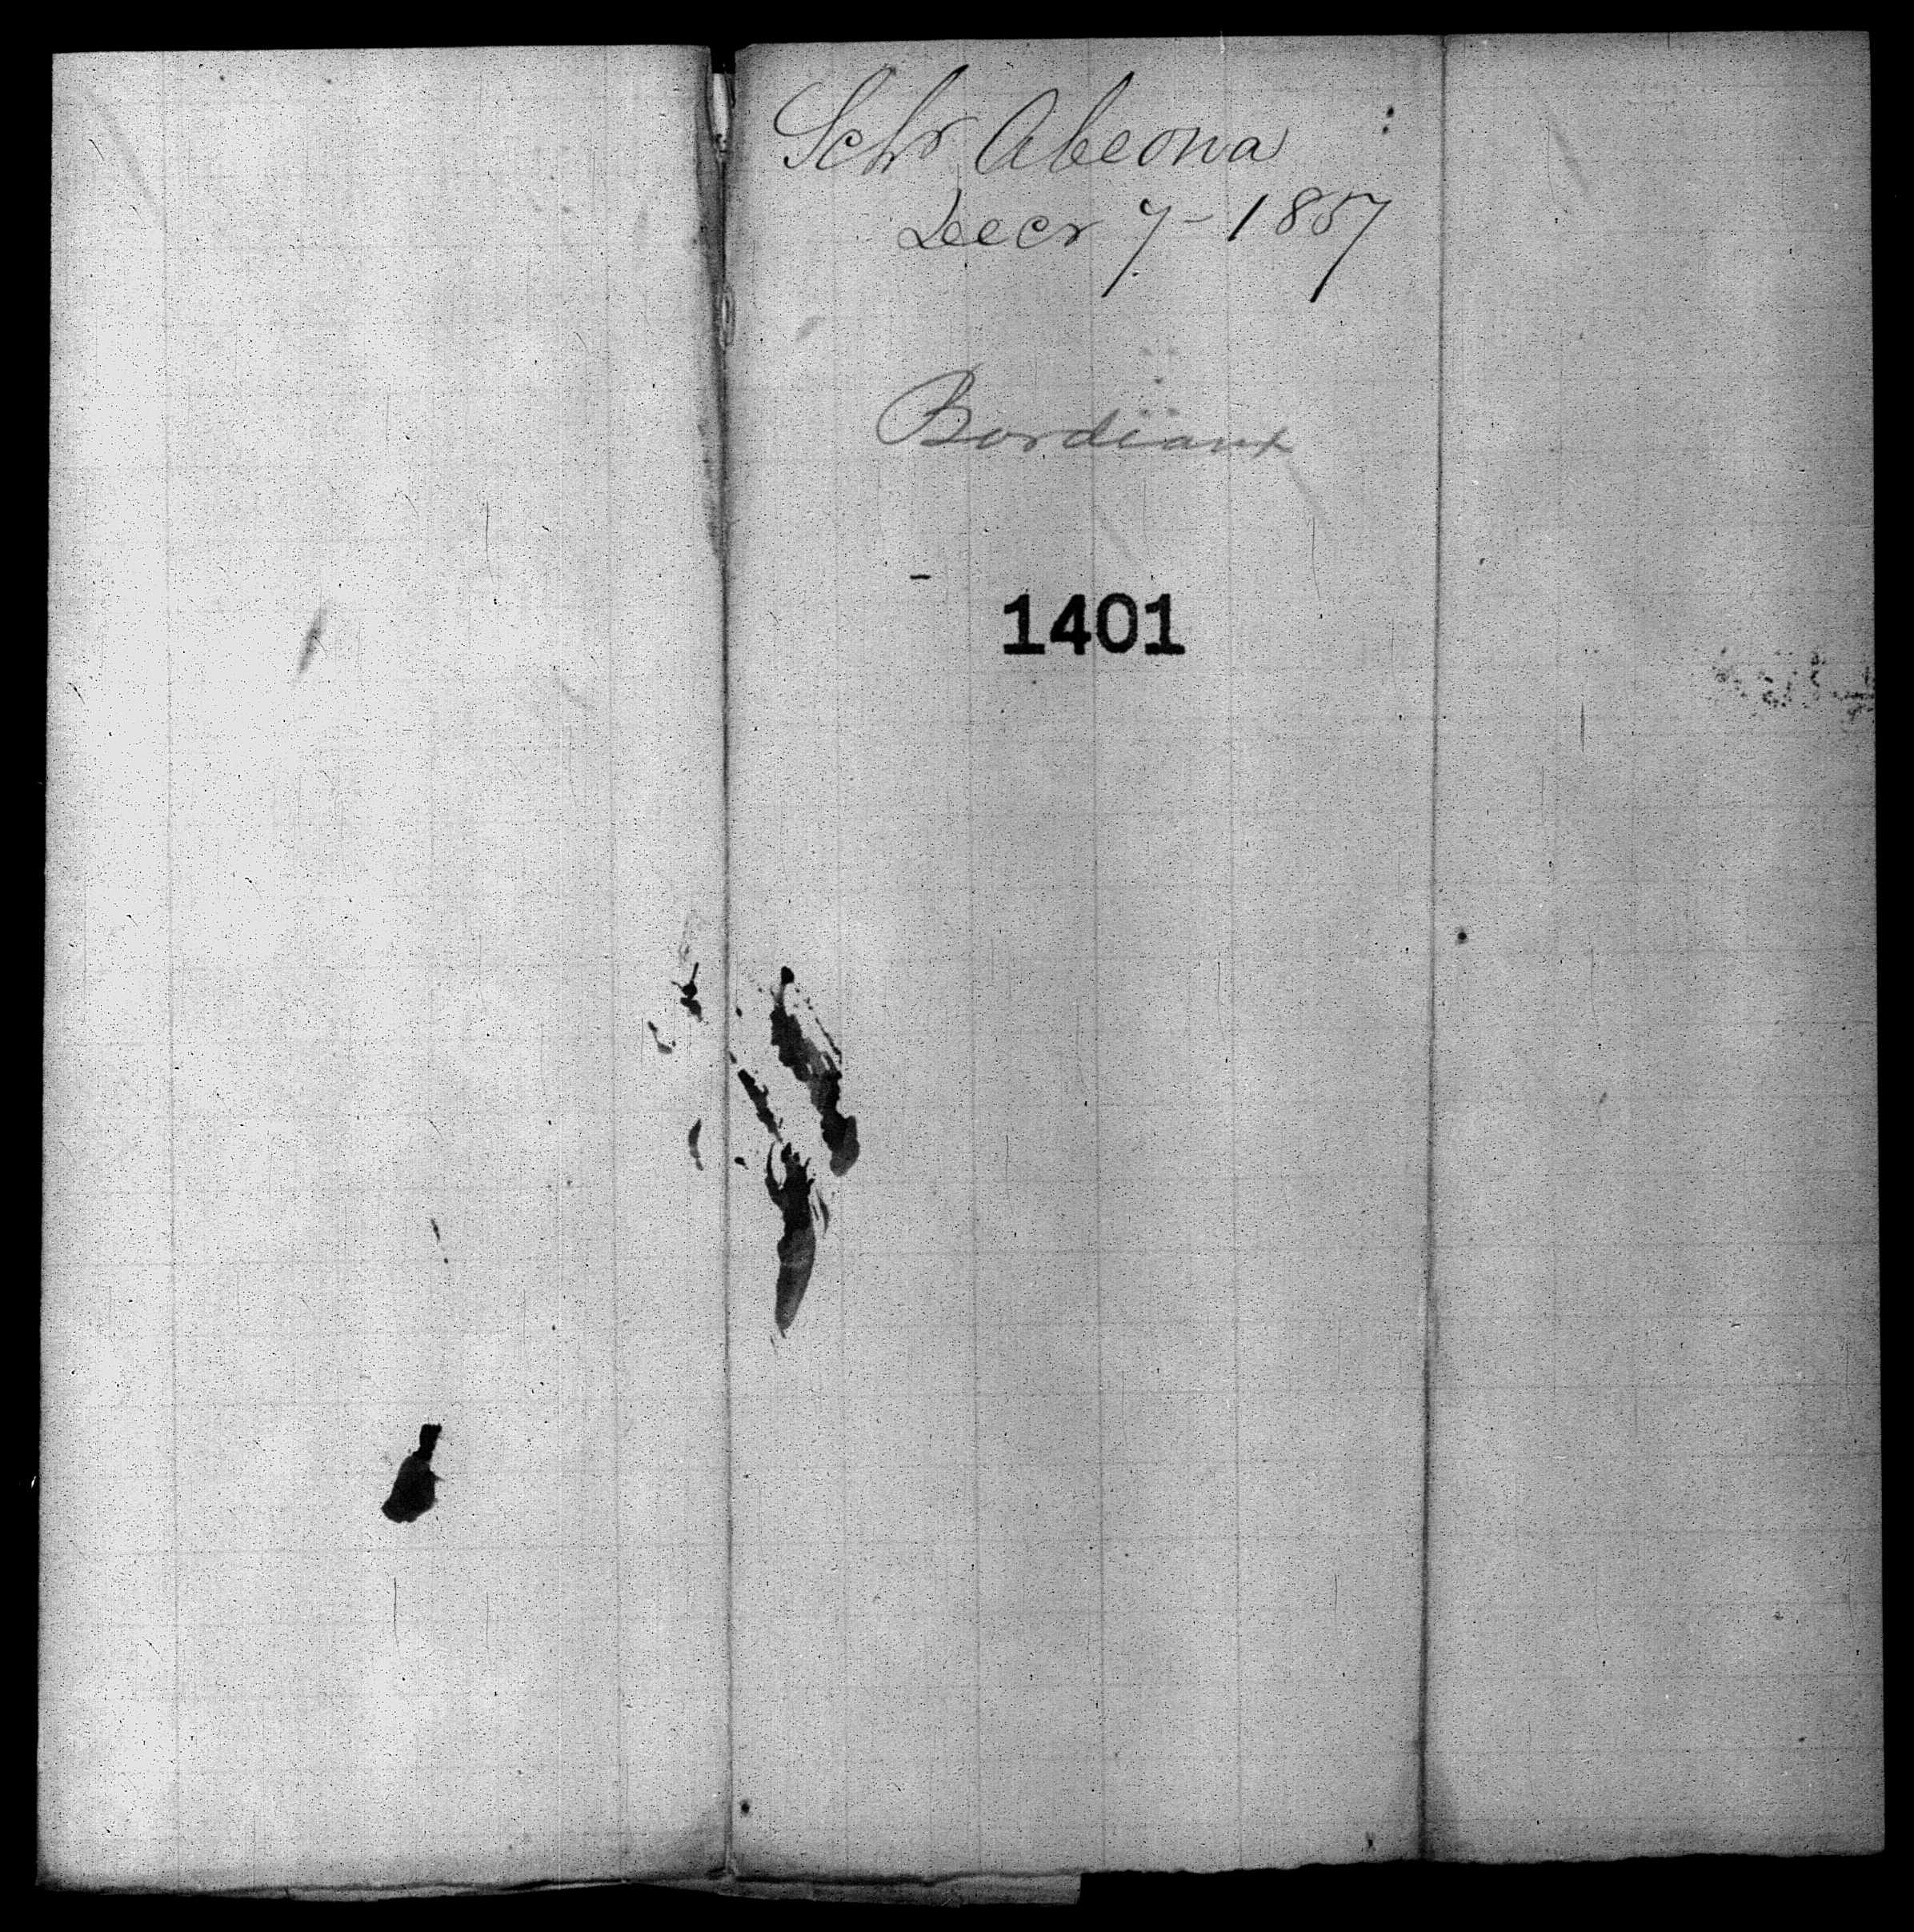 Schr Abeona
Decr 7 - 1857
Bordiaux
1401